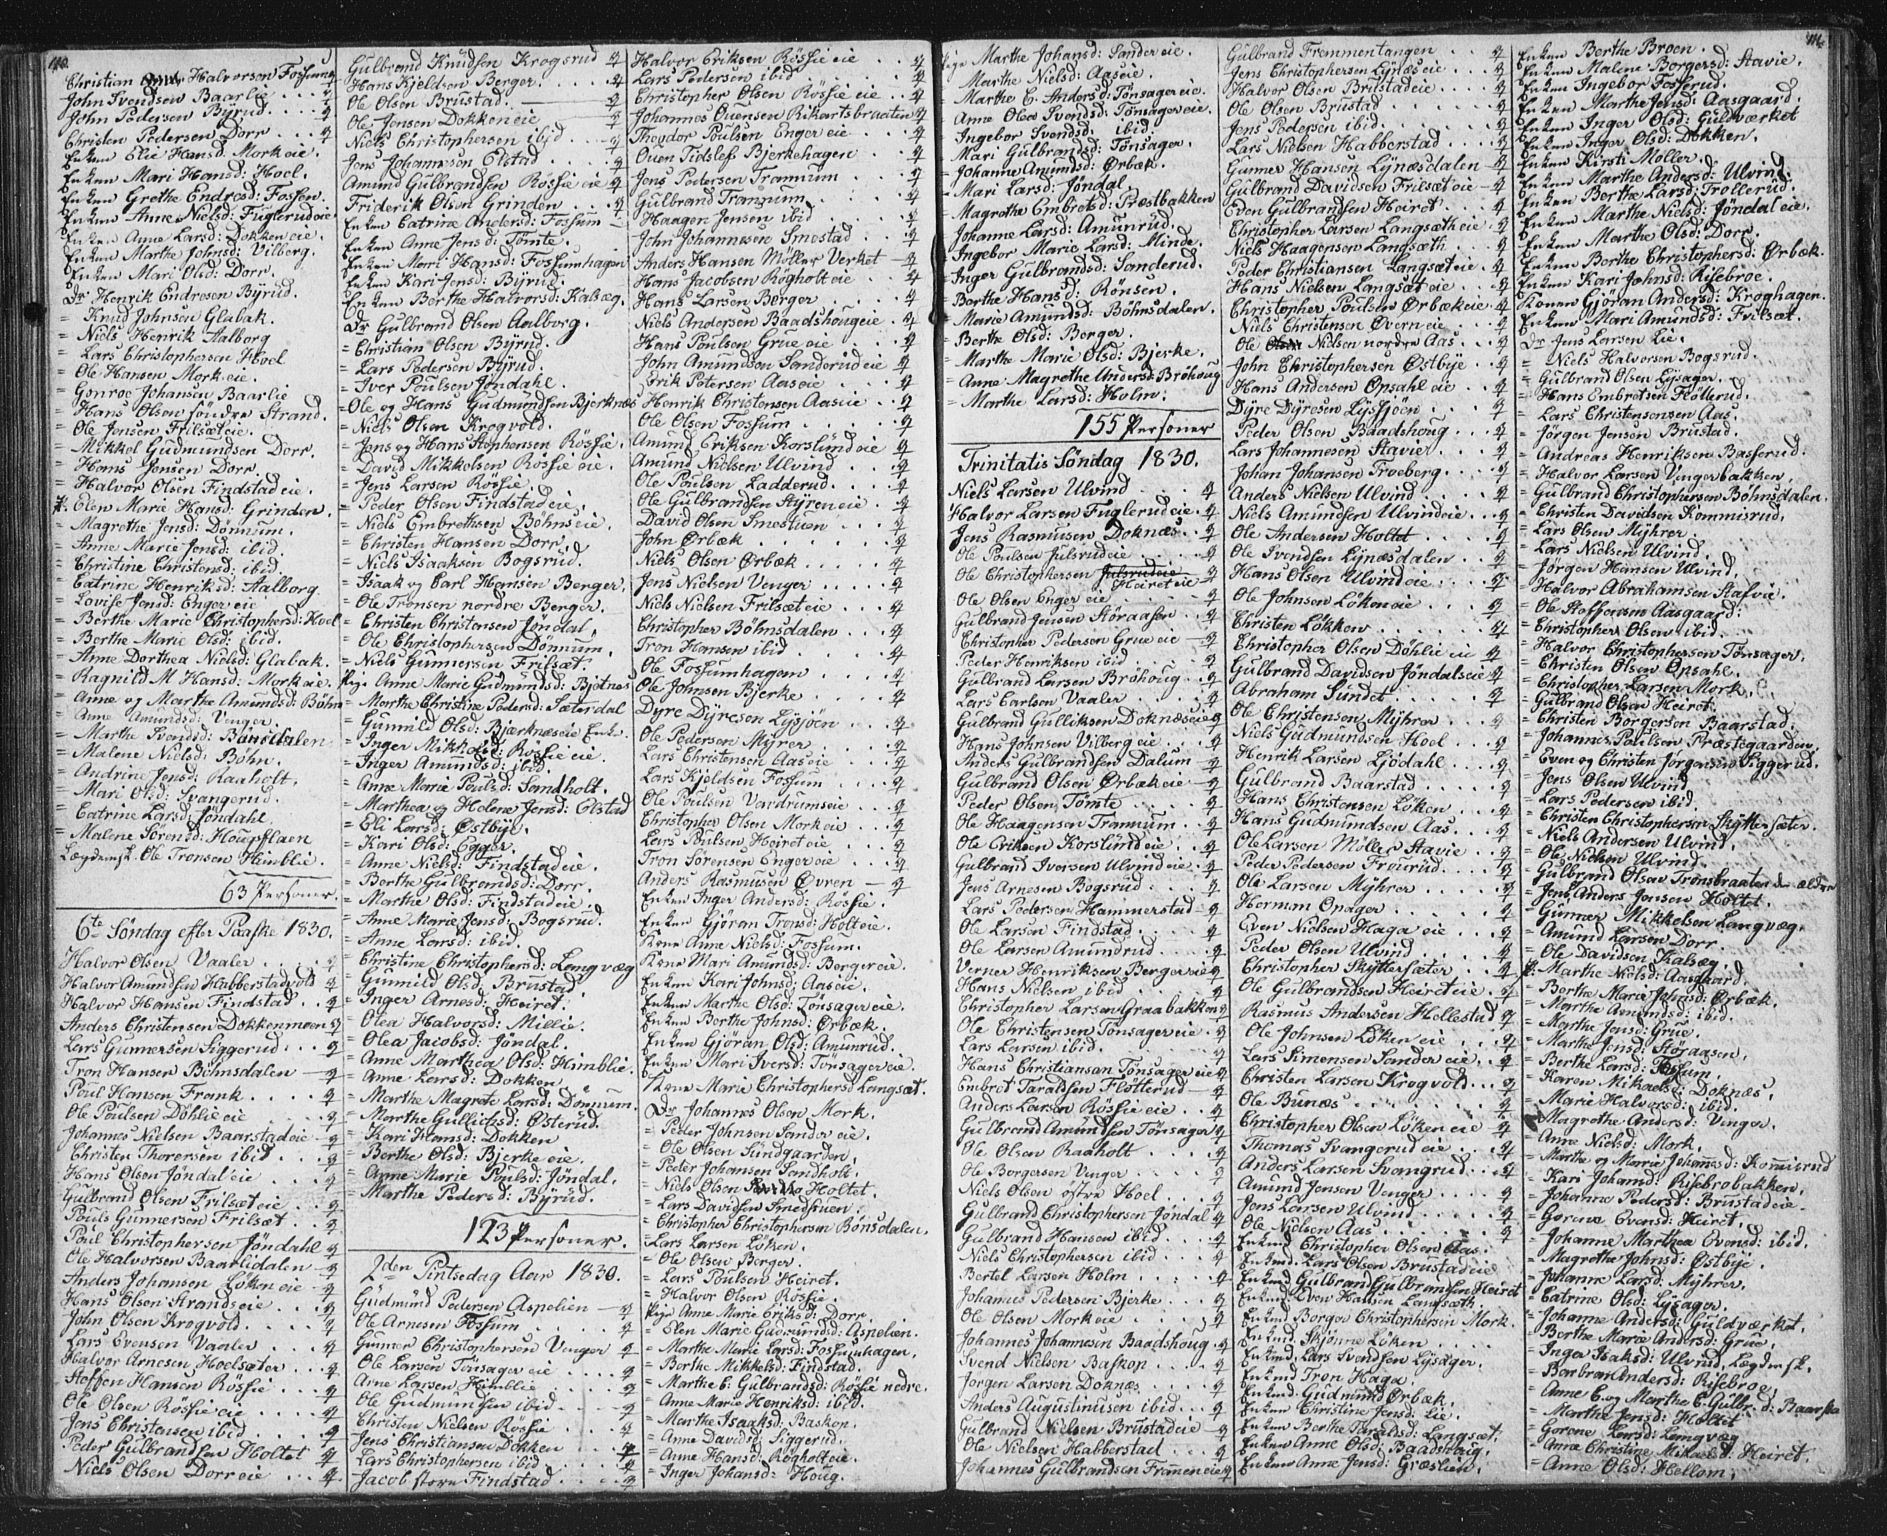 110.
Christian Halvorsen Fossum
John Svendsen Baarlie
John Pedersen Byrud
Christen Pedersen Dorr
Enken Elie Hansd: Morkeie.
Enken Mari Hansd: Hoel.
Enken Grethe Endresd: Fossen.
Enken Anne Nielsd: Fuglerudeie
Enken Anne Larsd: Dokkeneie.
Enken Marthe Johnsd: Vilberg.
Enken Mari Olsd: Dorr.
Dr Henrik Endresen Byrud.
= Knud Johnsen Glabak.
= Niels Henrik Aalborg
= Lars Christophersen Hoel
= Ole Hansen Morkeie.
= Hans Olsen søndre Strand.
= Ole Jensen Frilsæteie.
= Mikkel Gudmundsen Dorr.
= Hans Jensen Dorr.
= Halvor Olsen Findstadeie.
P. Elen Marie Hansd: Grinden.
= Magrethe Jensd: Dønnum.
= Anne Marie Jensd: ibid.
= Christine Christensd: ibid.
= Catrine Henriksd: Aalborg
= Lovise Jensd: Engereie
= Berthe Marie Christophersd: Hoel
= Berthe Marie Olsd: ibid.
= Anne Dorthea Nielsd: Glabak.
= Ragnild M Hansd: Morkeie.
= Anne og Marthe Amundsd: Bøhn
= Anne Amundsd: Venger.
= Marthe Svendsd: Bønsdalen
= Malene Nielsd: Bøhn.
= Andrine Jensd: Raaholt.
= Mari Olsd: Svangerud.
= Catrine Larsd: Jøndahl.
= Malene Sørensd:
Lægdemsk. Ole Tronsen Himblie.
63 Personer.
6te Søndag efter Paaske 1830.
Halvor Olsen Vaaler
Halvor Amundsen Habberstadvold
Halvor Hansen Findstad
Anders Christensen Dokkenmoen
Lars Gunnersen Siggerud
Tron Hansen Bøhnsdalen
Poul Hansen Frank
Ole Poulsen Døhlieeie
Johannes Nielsen Baarstadeie
Christen Thoresen ibid
Hans Olsen Jøndaleie
Gulbrand Olsen Frilsæteie
Pouls Gunnersen Frilsæt
Poul Christophersen Jøndahl
Ole Halvorsen Baarlidalen
Anders Johansen Løkeneie
Hans Olsen Strandseie
John Olsen Krogvold
Lars Evensen Vaaler
Halvor Arnesen Hoelsæter
Steffen Hansen Røssie
Ole Olsen Røssieeie
Jens Christensen ibid
Peder Gulbrandsen Holtet
Niels Olsen Dorreie
Gulbrand Knudsen Krogsrud
Hans Kjeldsen Berger
Ole Olsen Brustad.
Ole Jensen Dokkeneie
Niels Christophersen ibid
Jens Johannesen Elstad
Amund Gulbrandsen Røssieeie
Friderik Olsen Grinden
Enken Catrine Andersd: Fossum
Enken Anne Jensd: Tømte.
Enken Mari Hansd: Fossumhagen
Enken Kari Jensd: Byrud.
Enken Berthe Halvorsd: Kalsæg.
Dr Gulbrand Olsen Aalborg.
= Christian Olsen Byrud.
= Lars Pedersen Byrud.
= Iver Poulsen Jøndahl.
= Ole og Hans Gudmundsen Bjerknes
= Niels Olsen Krogvold.
= Jens og Hans Stephensen Røssie.
= David Mikkelsen Røssieeie.
= Jens Larsen Røssie.
= Peder Olsen Findstadeie.
= Niels Embrethsen Bøhnseie.
= Christen Hansen Dorr.
= Niels Isaaksen Bogsrud.
= Isaak og Carl Hansen Berger.
= Ole Tronsen nordre Berger.
= Christen Christensen Jøndal.
= Ole Christophersen Dønnum.
= Niels Gunnersen Frilsæt.
Pige Anne Marie Gudmundsd: Bjøtnes
= Marthe Christine Pedersd: Sæterdal
= Gunnild Olsd: Bjerkneseie Enke.
= Inger Mikkelsd: Røssieeie.
= Inger Amundsd: ibid.
= Anne Marie Poulsd: Sandholt.
= Marthea og Helene Jensd: Olstad
= Eli Larsd: Østbye.
= Kari Olsd: Egger.
= Anne Nielsd: Findstadeie.
= Berthe Gulbrandsd: Dorr.
= Marthe Olsd: Findstadeie.
= Anne Marie Jensd: Bogsrud.
= Anne Larsd: ibid.
= Christine Christophersd: Langvæg
= Gunnild Olsd: Brustad.
= Inger Arnesd: Heiret.
= Olea Halvorsd: Millie.
= Olea Jacobsd: Jøndal.
= Anne Marthea Olsd: Himblie.
= Anne Larsd: Dokken.
= Marthe Magrete Larsd: Dønnum.
= Marthe Gullichsd: Østerud.
= Kari Hansd: Dokken
= Berthe Olsd: Bjerkeeie.
= Anne Marie Poulsd: Jøndal.
= Marthe Pedersd: Byrud.
123 Personer.
2den Pintsedag Aar 1830.
Gudmund Pedersen Aspelien
Ole Arnesen Fossum
Gunner Christophersen Venger
Ole Larsen Tønsagereie
Arne Larsen Himblie
Ole Gudmundsen ibid
Christen Nielsen Røssie
Jens Christiansen Dokken
Lars Christophersen ibid
Jacob store Findstad
Halvor Eriksen Røssieeie
Lars Pedersen ibid
Christopher Olsen Røssieeie
Johannes Ouensen Rikartsbraaten
Theodor Poulsen Engereie
Ouen Tidslef Bjerkehagen
Jens Pedersen Trannum
Gulbrand Trannum
Haagen Jensen ibid
John Johannesen Smestad
Anders Hansen Møller Verket
Hans Jacobsen Rogholteie
Hans Larsen Berger
Niels Andersen Baadshougeie
Hans Poulsen Grueeie
John Amundsen Sanderudeie
Erik Petersen Aaseie
Henrik Christensen Aaseie
Ole Olsen Fossum
Amund Eriksen Korslundeie
Amund Nielsen Ulvind
Ole Poulsen Ladderud
Ole Gulbrandsen Styreneie
David Olsen Smestuen
John Ørbæk
Niels Olsen Ørbæk
Jens Nielsen Venger
Niels Nielsen Frilsæteie
Christopher Bøhnsdalen
Tron Hansen ibid
Ole Fossumhagen
Ole Johnsen Bjerke
Dyre Dyresen Lysjøen
Ole Pedersen Myrer
Lars Christensen Aaseie
Lars Kjeldsen Fossum
Ole Poulsen Vardrumseie
Christopher Olsen Morkeie
Lars Poulsen Heireteie
Tron Sørensen Engereie
Anders Rasmusen Øvren
Enken Inger Andersd: Røssie.
Enken Gjøran Tronsd: Holteie.
Kone Anne Nielsd: Fossum.
Kone Mari Amundsd: Bergereie.
Enken Kari Johnsd: Aaseie.
Enken Marthe Olsd: Tønsagereie.
Enken Berthe Johnsd: Ørbæk.
Enken Gjøran Olsd: Amunrud.
Enken Mari Iversd: Tønsagereie.
Kone Marie Christophersd Langsæt.
Dr Johannes Olsen Mork.
= Peder Johnsen Sandereie.
= Ole Olsen Sundgaarden.
= Peder Johansen Sandholt.
= Niels Olsen Holtet.
= Lars Davidsen Smedstuen.
= Christopher Christophersen Bønsdalen.
= Lars Larsen Løken.
= Ole Olsen Berger.
= Lars Poulsen Heiret.
= Halvor Olsen Røssie.
Pige Anne Marie Eriksd: Dorr.
= Elen Marie Gudmundsd: Aspelien.
= Marthe Marie Larsd: Fossumhagen.
= Berthe Mikkelsd: Findstad.
= Marthe C: Gulbrandsd: Røssie nedre.
= Anne Marie Henriksd: ibid.
= Marthe Isaaksd: Baskop.
= Anne Davidsd: Siggerud.
= Anne Hansd: Rogholteie.
= Inger Johansd: Houg.
Pige Marthe Johansd: Sandereie.
= Marthe Nielsd: Aaseie.
= Marthe C. Andersd: Tønsagereie.
= Anne Olea Svendsd: Tønsagereie.
= Ingebor Svendsd: ibid.
= Mari Gulbrandsd: Tønsager.
= Johanne Amundsd: Ørbæk.
= Mari Larsd: Jøndal.
= Magrethe Embretsd: Præstbakken
= Johanne Larsd: Amunrud.
= Ingebor Marie Larsd: Minde.
= Inger Gulbrandsd: Sanderud.
= Berthe Hansd: Rørsen.
= Marie Amundsd: Bøhnsdalen.
= Berthe Olsd: Berger.
= Marthe Marie Olsd: Bjerke.
= Anne Magrethe Andersd: Brøhoug
= Marthe Larsd: Holm.
155 Personer
Trinitatis Søndag 1830.
Niels Larsen Ulvind
Halvor Larsen Fuglerudeie
Jens Rasmusen Doknæs
Ole Poulsen Julsrudeie
Ole Christophersen Julsrudeie
Heireteie
Ole Olsen Engereie
Gulbrand Jensen Støraasen
Christopher Pedersen Grueeie
Peder Henriksen ibid
Gulbrand Larsen Brøhoug
Lars Carlsen Vaaler
Gulbrand Gulliksen Doknæseie
Hans Johnsen Vilbergeie
Anders Gulbrandsen Dalum
Gulbrand Olsen Ørbækeie
Peder Olsen Tømte
Ole Haagensen Trannum
Ole Eriksen Korslundeie
Gulbrand Iversen Ulvindeie
Jens Arnesen Bogsrud
Lars Pedersen Hammerstad
Ole Larsen Findstad
Ole Larsen Amundrud
Verner Henriksen Bergereie
Hans Nielsen ibid
Christopher Larsen Graabakken
Ole Christensen Tønsagereie
Lars Larsen ibid.
Hans Christiansan Tønsagereie
Embret Taraldsen Fløtterud
Anders Larsen Røssieeie
Gulbrand Amundsen Tønsager
Ole Olsen Raaholt
Ole Borgersen Venger
Niels Olsen østre Hoel
Gulbrand Christophersen Jøndal
Gulbrand Hansen ibid
Niels Christophersen ibid
Bertel Larsen Holm
Johannes Pedersen Bjerke
Ole Olsen Morkeie
Johannes Johannesen Baadshoug
Svend Nielsen Baskop
Jørgen Larsen Doknæs
Anders Augustinusen ibid
Gulbrand Nielsen Brustadeie
Ole Nielsen Habberstad
Johannes Gulbrandsen Franeneie
Gulbrand Fremmentangen
Jens Christophersen Lynæseie
Halvor Olsen Brustadeie
Ole Olsen Brustad
Jens Pedersen ibid
Lars Nielsen Habberstad
Gunner Hansen Lynæsdalen
Gulbrand Davidsen Frilsæteie
Even Gulbrandsen Heiret
Christopher Larsen Langsætheie
Niels Haagensen Langsæth
Peder Christiansen Langsæteie
Hans Nielsen Langsæteie
Christopher Poulsen Ørbækeie
Niels Christensen Øverneie
Ole Nielsen nordre Aas
John Christophersen Østbye
Hans Andersen Opsahleie
Dyre Dyresen Lysjøen
Peder Olsen Baadshoug
Lars Johannesen Stavie
Johan Johansen Troeberg
Anders Nielsen Ulvind
Niels Amundsen Ulvindeie
Ole Andersen Holtet
Ole Svendsen Lynæsdalen
Hans Olsen Ulvindeie
Ole Johnsen Løkeneie
Christen Løkken
Christopher Olsen Døhlieeie
Gulbrand Davidsen Jøndalseie
Abraham Sundet
Ole Christensen Myhrer
Niels Gudmundsen Hoel
Henrik Larsen Ljødahl
Gulbrand Baarstad
Hans Christensen Løken
Hans Gudmundsen Aas
Ole Larsen Møller Stavie
Peder Pedersen Frøurud
Ole Larsen Myhrer
Herman Onager
Even Nielsen Hagaeie
Peder Olsen Ulvind
Christopher Skyttersæter
Ole Gulbrandsen Heireteie
Rasmus Andersen Hellestad
Ole Johnsen Løkeneie
Lars Simensen Sandereie
Christen Larsen Krogvold
Ole Bunæs
Christopher Olsen Løkeneie
Thomas Svangerudeie
Anders Larsen Svangrud
Amund Jensen Venger
Jens Larsen Ulvind
Ole Nielsen Aas
Enkemd. Christopher Olsen Aas.
Enkemd. Lars Olsen Brustadeie
Enkemd Gulbrand Gulbrandsen Heiret
Enkemd Even Hansen Langsæth.
Enkemd Borger Christophersen Mork.
Enkemd. Skjønne Løken
Enkemd. Lars Svendsen Lysager.
Enkemd Tron Haga.
Enkemd. Gudmund Ørbæk.
Enken Christine Jensd: Lie.
Enken Berthe Taraldsd: Langsæt.
Enken Anne Olsd: Baadshaug.
Enken Anne Jensd: Græslien.
111.
Enken Berthe Broen.
Enken Malene Borgersd: Stavie.
Enken Ingebor Fosserud.
Enken Marthe Jensd: Aasgaard.
Enken Inger Olsd: Guldværket
Enken Inger Olsd: Dokken.
Enken Kirsti Møller.
Enken Marthe Andersd: Ulvind.
Enken Berthe Larsd: Trollerud.
Enken Marthe Nielsd: Jøndaleie.
Enken Marthe Olsd: Dorr.
Enken Berthe Christophersd: Ørbæk.
Enken Kari Johnsd: Risebroe.
Konen Gjøran Andersd: Kroghagen.
Enken Mari Amundsd: Frilsæt.
Dr Jens Larsen Lie.
= Niels Halvorsen Bogsrud.
= Gulbrand Olsen Lysager.
= Hans Embretsen Fløtterud.
= Lars Christensensen Aas.
= Jørgen Jensen Brustad.
= Andreas Henriksen Basserud.
= Halvor Larsen Vengerbakken.
= Gulbrand Christophersen Bøhnsdalen.
= Christen Davidsen Kommisrud.
= Lars Olsen Myhrer.
= Lars Nielsen Ulvind.
= Jørgen Hansen Ulvind.
= Halvor Abrahamsen Stafvie.
= Ole Steffensen Aasgaard.
= Christopher Olsen ibid.
= Halvor Christophersen Tønsager.
= Christen Olsen Opsahl.
= Christopher Larsen Mork.
= Gulbrand Olsen Heiret.
= Christen Borgersen Baarstad.
= Johannes Poulsen Præstegaarden.
= Even og Christen Jørgensen Siggerud.
= Jens Olsen Ulvind
= Lars Pedersen ibid.
= Christen Christophersen Skyttersæter.
= Niels Andersen Ulvind.
= Ole Nielsen Ulvind.
= Gulbrand Olsen Tronsbraaten d. ældre
= Jens Anders Jensen Holtet.
= Gunner Mikkelsen Langvæg.
= Amund Larsen Dorr.
= Ole Davidsen Kalsæg.
P: Marthe Nielsd: Aasgaard.
= Berthe Marie Johnsd: Ørbæk.
= Marthe Amundsd: ibid.
= Marthe Jensd: Grue.
= Marthe Jensd: Støraasen.
= Berthe Larsd: Fossum.
= Karen Mikaelsd: Doknæs.
= Marie Halvorsd: ibid.
= Magrethe Andersd: Venger.
= Anne Nielsd: Mork.
= Marthe og Marie Johannesd: Komisrud
= Kari Johansd: Risebrobakken.
= Johanne Pedersd: Brustadeie.
= Gorene Evensd: Heiret.
= Johanne Marthea Evensd: ibid.
= Magrethe Johnsd: Østbye.
= Johanne Larsd: Myhrer.
= Catrine Olsd: Lysager.
= Johanne Andersd: Guldværket.
= Berthe Marie Andersd: Grue.
= Inger Isaksd: Ulvind, Lægdemsk.
= Barbra Andersd: Risebroe.
= Anne C. og Marthe C. Gulbr.d: Baarsta
= Marthe Jensd: Holtet
= Gorene Larsd: Langvæg
= Anne Christine Mikaelsd: Heiret.
= Anne Olsd: Hellom.